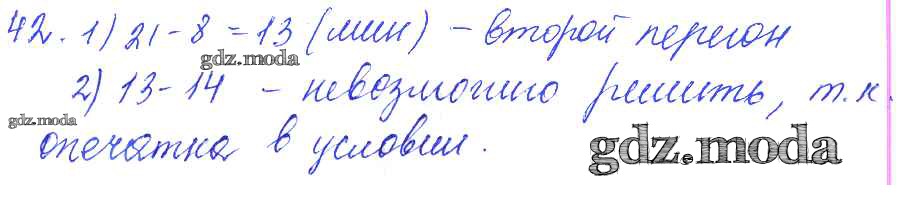 42. 1) 21 - 8 = 13 (мин) - второй перегон
gdz.moda
2) 13 - 14 - невозможно решить, т.к.
gdz.moda
опечатка в условии.
gdz.moda